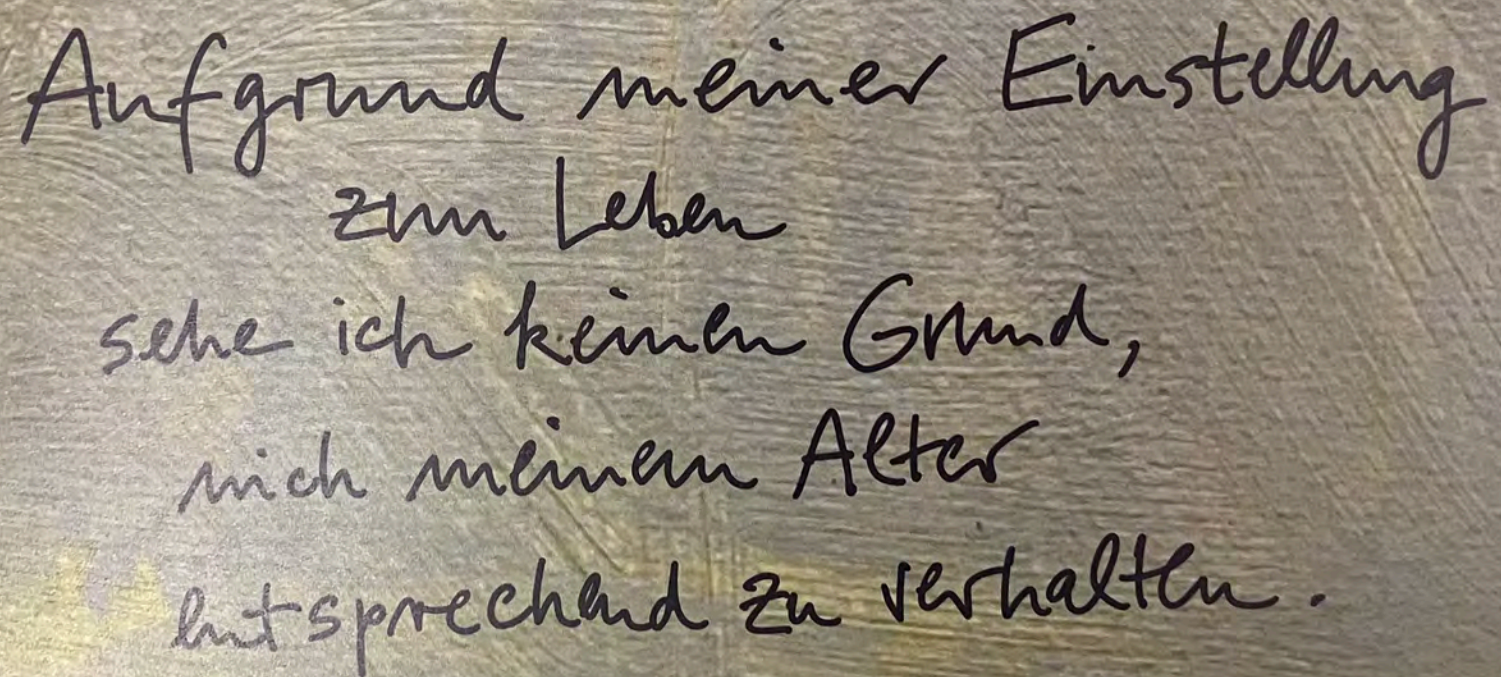 Aufgrund meiner Einstellung
zum Leben
sehe ich keinen Grund,
mich meinem Alter
entsprechend zu verhalten.